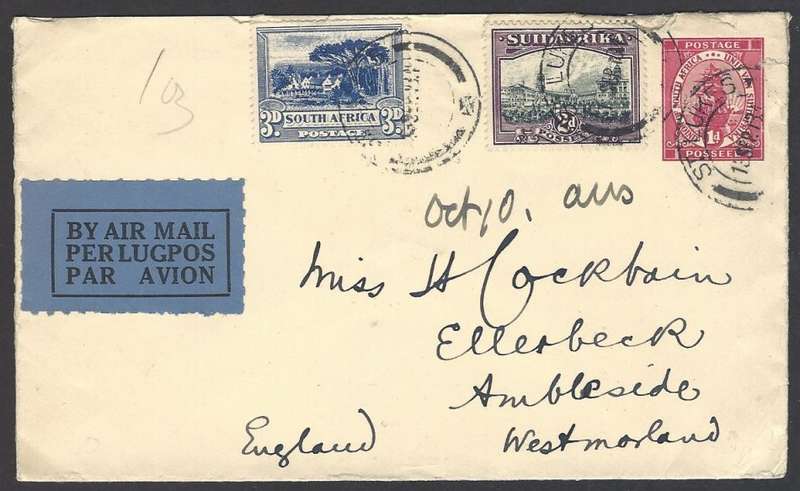 103
3D SOUTH AFRICA 3D
POSTAGE
SUIDAFRIKA
2D
POSSEEL
POSTAGE
SOUTH AFRICA
1d
POSSEEL
BY AIR MAIL
PER LUGPOS
PAR AVION
Oct 10. ans
Miss H Cockbain
Ellerbeck
Ambleside
Westmorland
England